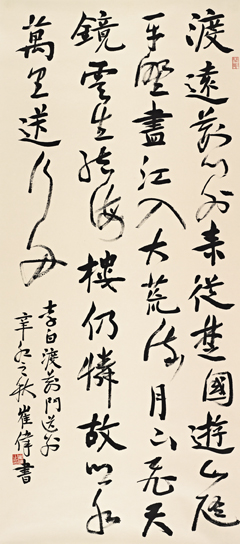 渡遠荊門外来從楚國遊山隨
平野盡江入大荒流月下飛天
鏡雲生結海樓仍憐故鄉水
萬里送行舟
李白渡荊門送別
辛卯之秋崔偉書